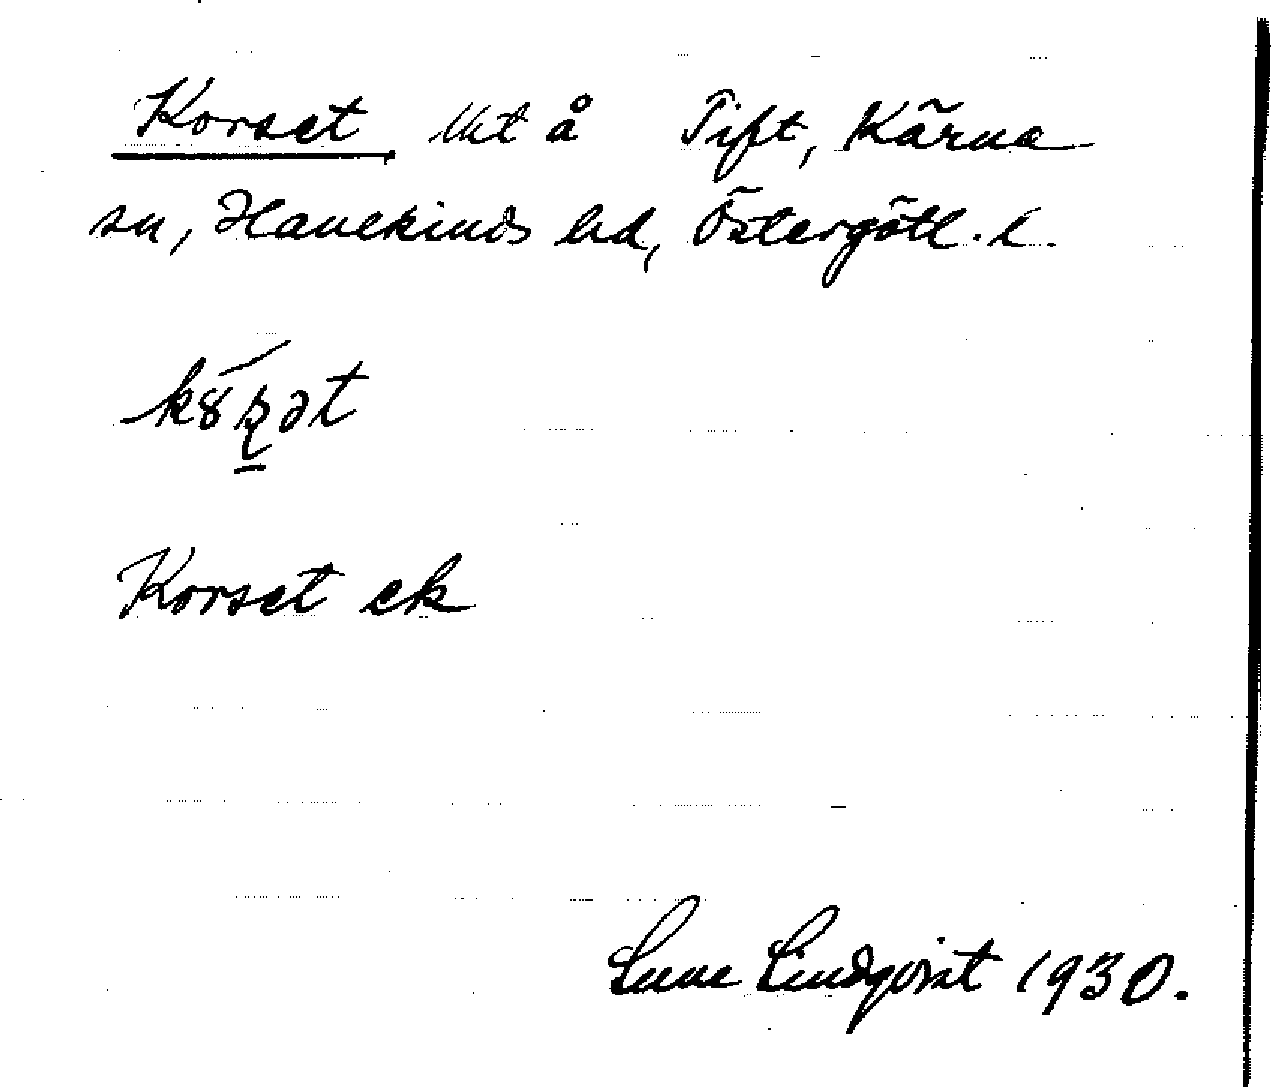 Korset Ukt å Tift, Kärna
sn, Hanekinds hd, Östergötl. l.
Korset ek
Sune Lindqvist 1930.